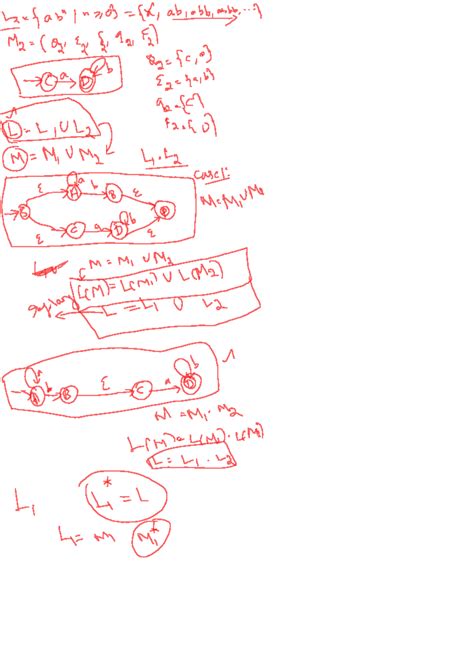 L₂ = {abⁿ | n ≥ 0} = {a, ab, abb, abbb, ...}
M₂ = (Q₂, Σ₂, δ₂, q₂, F₂)
Q₂ = {C, D}
C a D b
Σ₂ = {a, b}
q₂ = {C}
F₂ = {D}
L = L₁ ∪ L₂
M = M₁ ∪ M₂
L₁ . L₂
Case 1:
M = M₁ ∪ M₂
ε A a b B ε
ε C a D b ε
M = M₁ ∪ M₂
L(M) = L(M₁) ∪ L(M₂)
L = L₁ ∪ L₂
A a b B ε C a D b
M = M₁ . M₂
L(M) = L(M₁) . L(M₂)
L = L₁ . L₂
L₁
L₁* = L
L₁ = M₁ M₁*